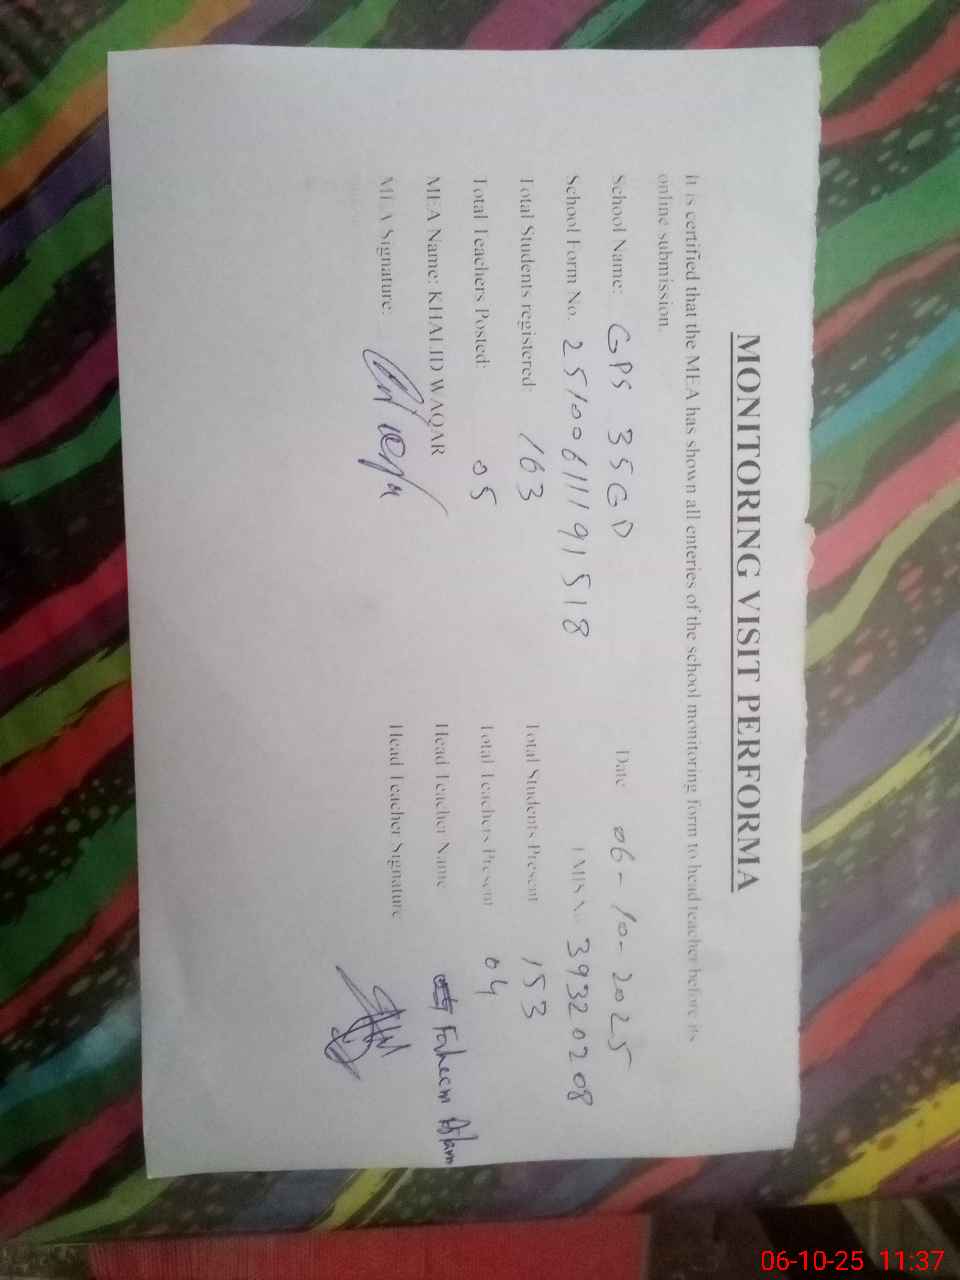 MONITORING VISIT PERFORMA
It is certified that the MEA has shown all enteries of the school monitoring form to head teacher before its
online submission.
School Name: GPS 35GD Date 06-10-2025
School Form No. 2510061119 1518 EMIS No 39320208
Total Students registered: 163 Total Students Present 153
Total Teachers Posted: 05 Total Teachers Present 04
MEA Name: KHALID WAQAR Head Teacher Name Faheem Aslam
MEA Signature: Head Teacher Signature
06-10-25 11:37